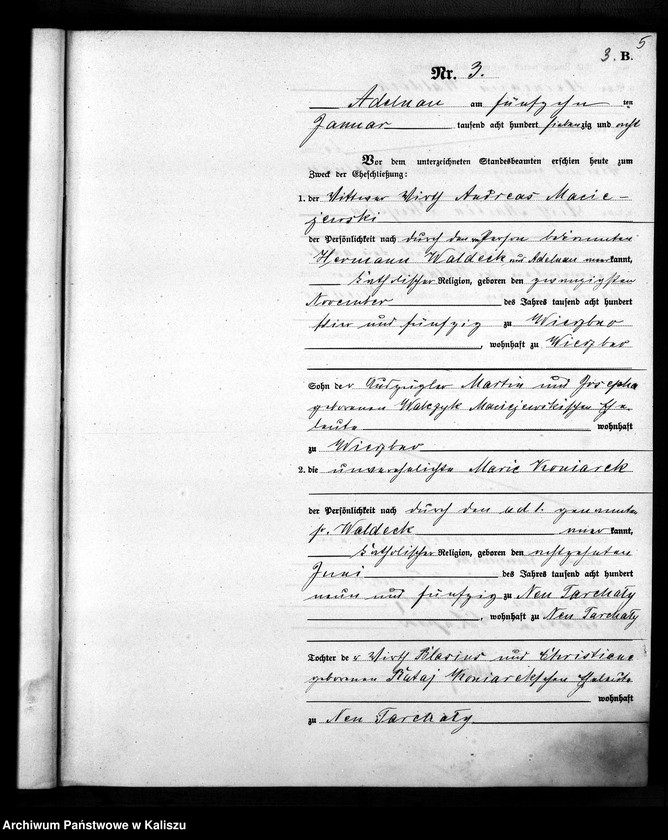 5
3. B.
Nr. 3.
Adelnau am fünfzehn ten
Januar tausend acht hundert siebenzig und acht
Vor dem unterzeichneten Standesbeamten erschien heute zum
Zweck der Eheschließung:
1. der Wittwer Wirth Andreas Macie-
jewski
der Persönlichkeit nach durch den Person bekannten
Hermann Waldeck aus Adelnau anerkannt,
katholischer Religion, geboren den zwanzigsten
November des Jahres tausend acht hundert
vier und fünfzig zu Wierzbno
, wohnhaft zu Wierzbno
Sohn der Auszügler Martin und Josepha
geborenen Walczyk Maciejewskischen Ehe-
leute wohnhaft
zu Wierzbno
2. die unverehelichte Marie Koniarek
der Persönlichkeit nach durch den ad 1. genannten
p. Waldeck aner kannt,
katholischer Religion, geboren den achtzehnten
Juni des Jahres tausend acht hundert
neun und fünfzig zu Neu Tarchaly
, wohnhaft zu Neu Tarchaly
Tochter der Wirth Blasius und Christiane
geborenen Rataj Koniarekschen Eheleute
wohnhaft
zu Neu Tarchaly
Archiwum Państwowe w Kaliszu